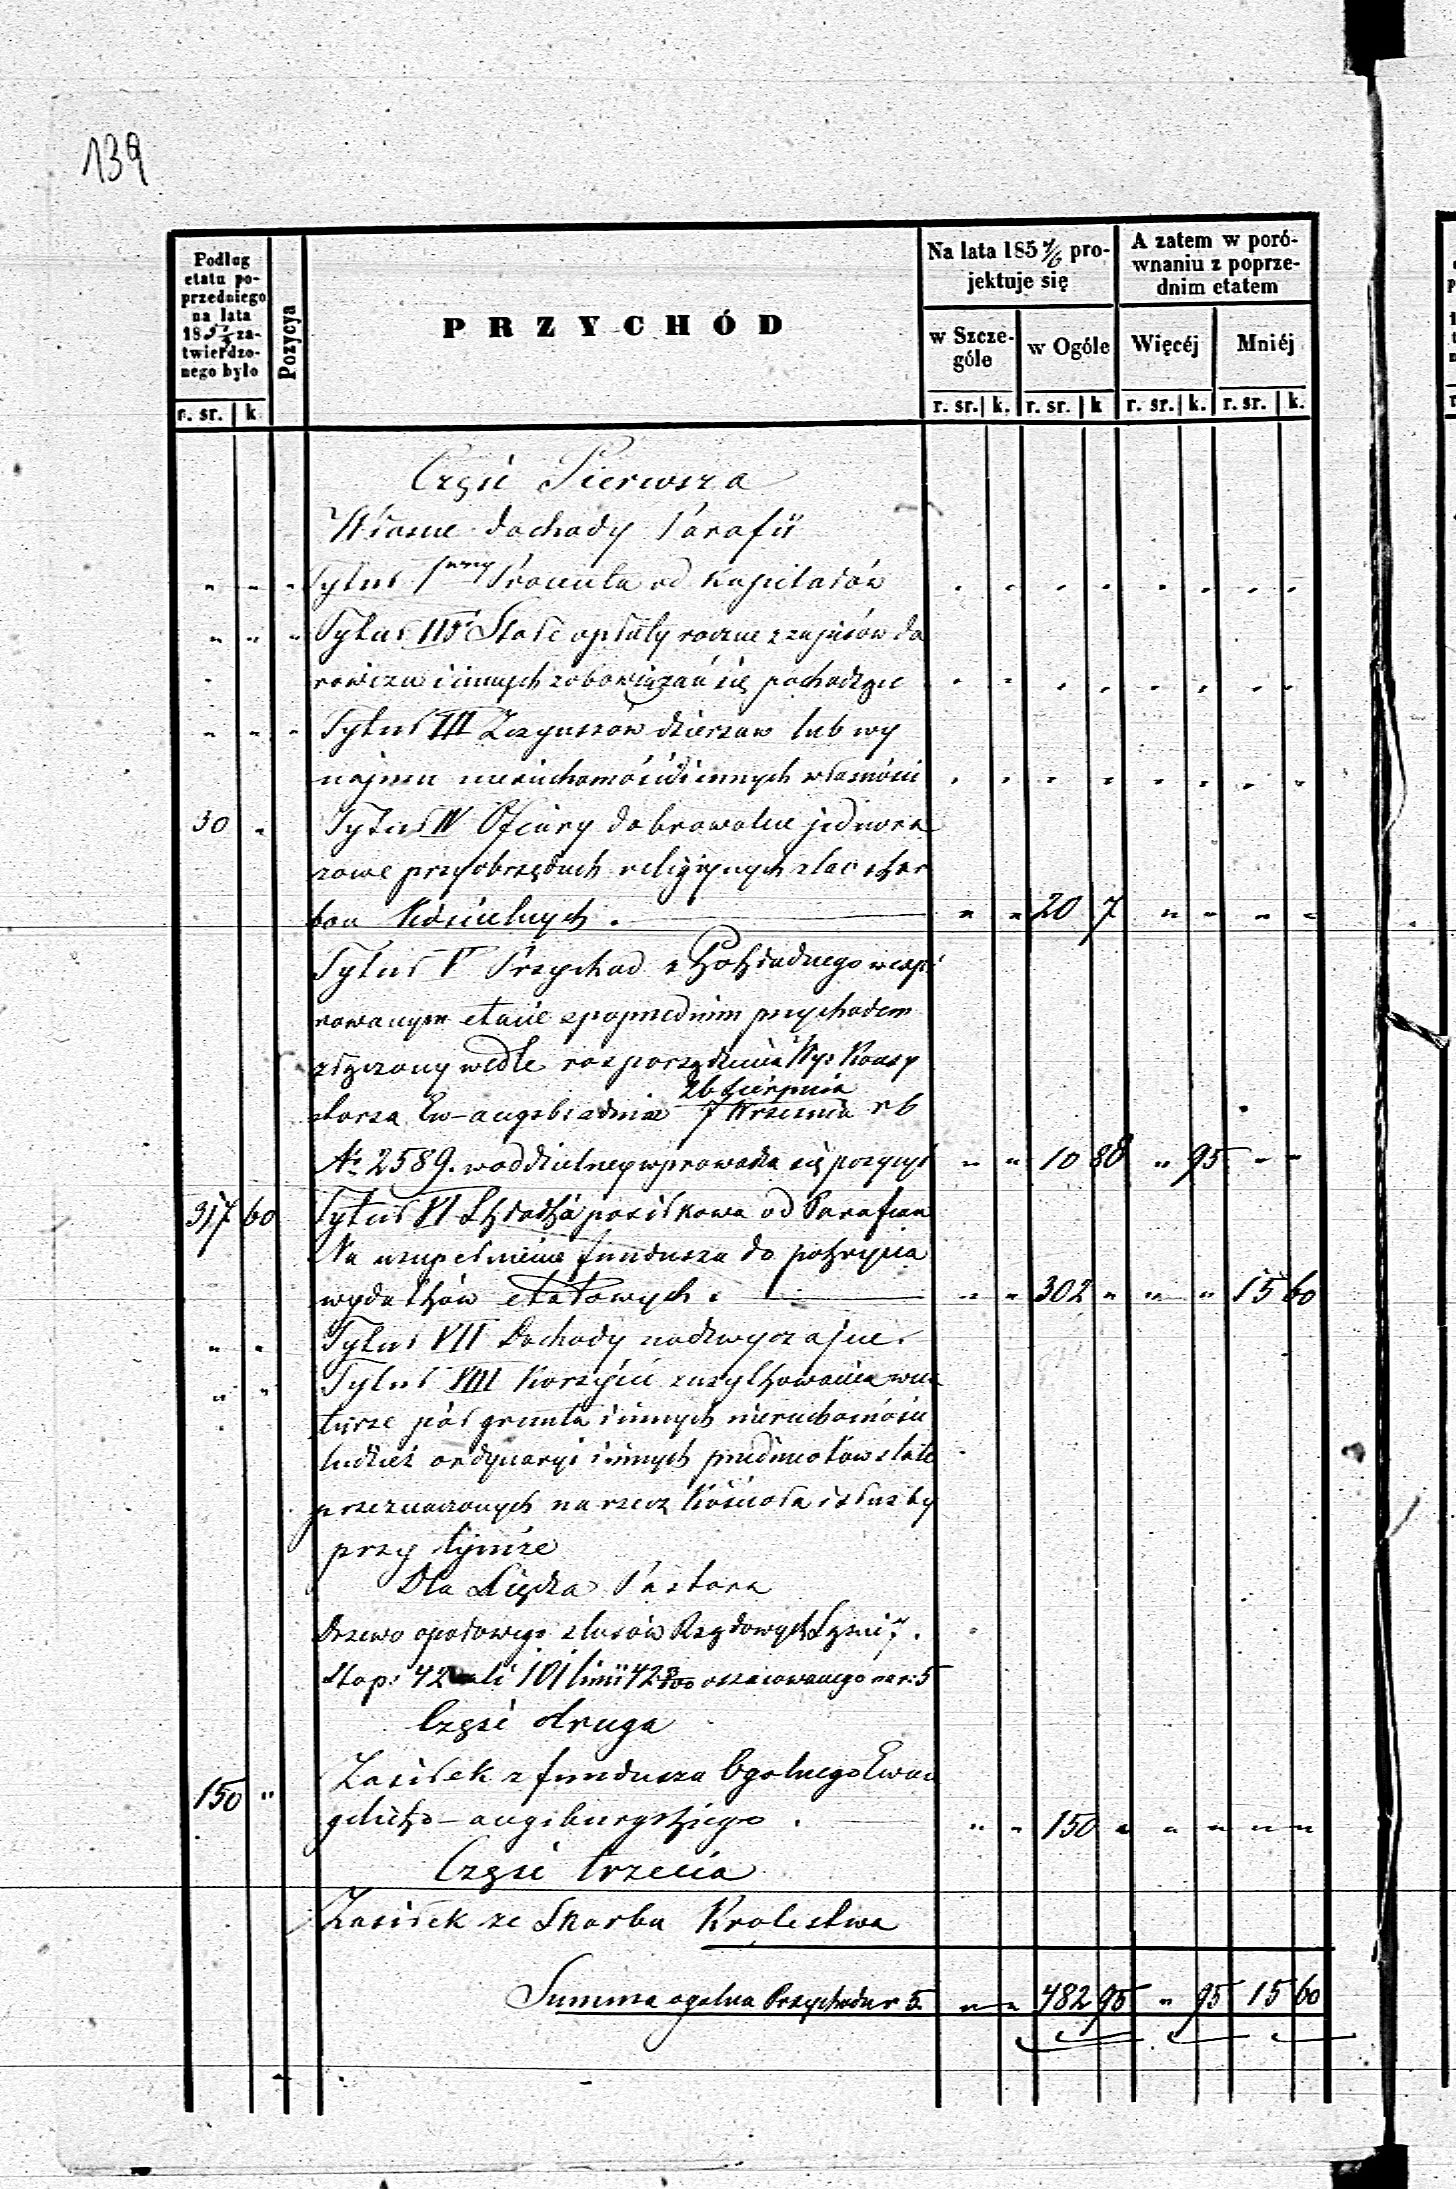 139
Podług etatu poprzedniego na lata 185 2/3 zatwierdzonego było
Pozycya
PRZYCHÓD
Na lata 185 4/6 projektuje się
A zatem w porównaniu z poprzednim etatem
w Szczególe
w Ogóle
Więcéj
Mniéj
r. sr. k. r. sr. k. r. sr. k r. sr. k. r. sr. k.
Część Pierwsza
Własne dochody Parafii
" " " Tytuł I Procenta od Kapitałów
" " " Tytuł II Stałe opłaty roczne z zapisów da
rowizn i innych zobowiązań się pochodzące
" " " Tytuł III Z czynszów dzierzaw lub wy
najmu nieruchomości i innych własności
30 " Tytuł IV Ofiary dobrowolne jednora
zowe przy obrzędach religijnych z tac i skar
bon Kościelnych. " " 20 7 " " " "
Tytuł V Przychod z Pokładnego w
rowanym etacie z poprzednim przychodem
złączony wedle rozporządzenia Wyz Konsy
storza Ew-augsb z dnia 26 Sierpnia / 7 Wrzesnia r b
No 2589. w oddzielney wprowadza się pozycyi " " 10 88 " 95 " "
317 60 Tytuł VI Składka posiłkowa od Parafian
Na uzupełnienie funduszu do pokrycia
wydatków etatowych. " " 302 " " " 15 60
" " Tytuł VII Dochody nadzwyczajne.
" " Tytuł VIII Korzyści z użytkowania w na
turze pól grunta i innych nieruchomości
tudzież ordynaryi i innych przedmiotow stale
przeznaczonych na rzecz Kościoła i służby
przy tymże
Dla Księdza Pastora
Drzewo opałowego z lasów Rządowych Sązni 7.
Stop: 42 cali 101 linii 42 oszacowanego na r: 5
Część druga
150 " Zasiłek z funduszu Ogolnego Ewan
gelicko-augsburgskiego. " " 150 " " " " "
Część trzecia
Zasiłek ze Skarbu Krolestwa
Summa ogolna Przychodu r s. " " 482 95 " 95 15 60